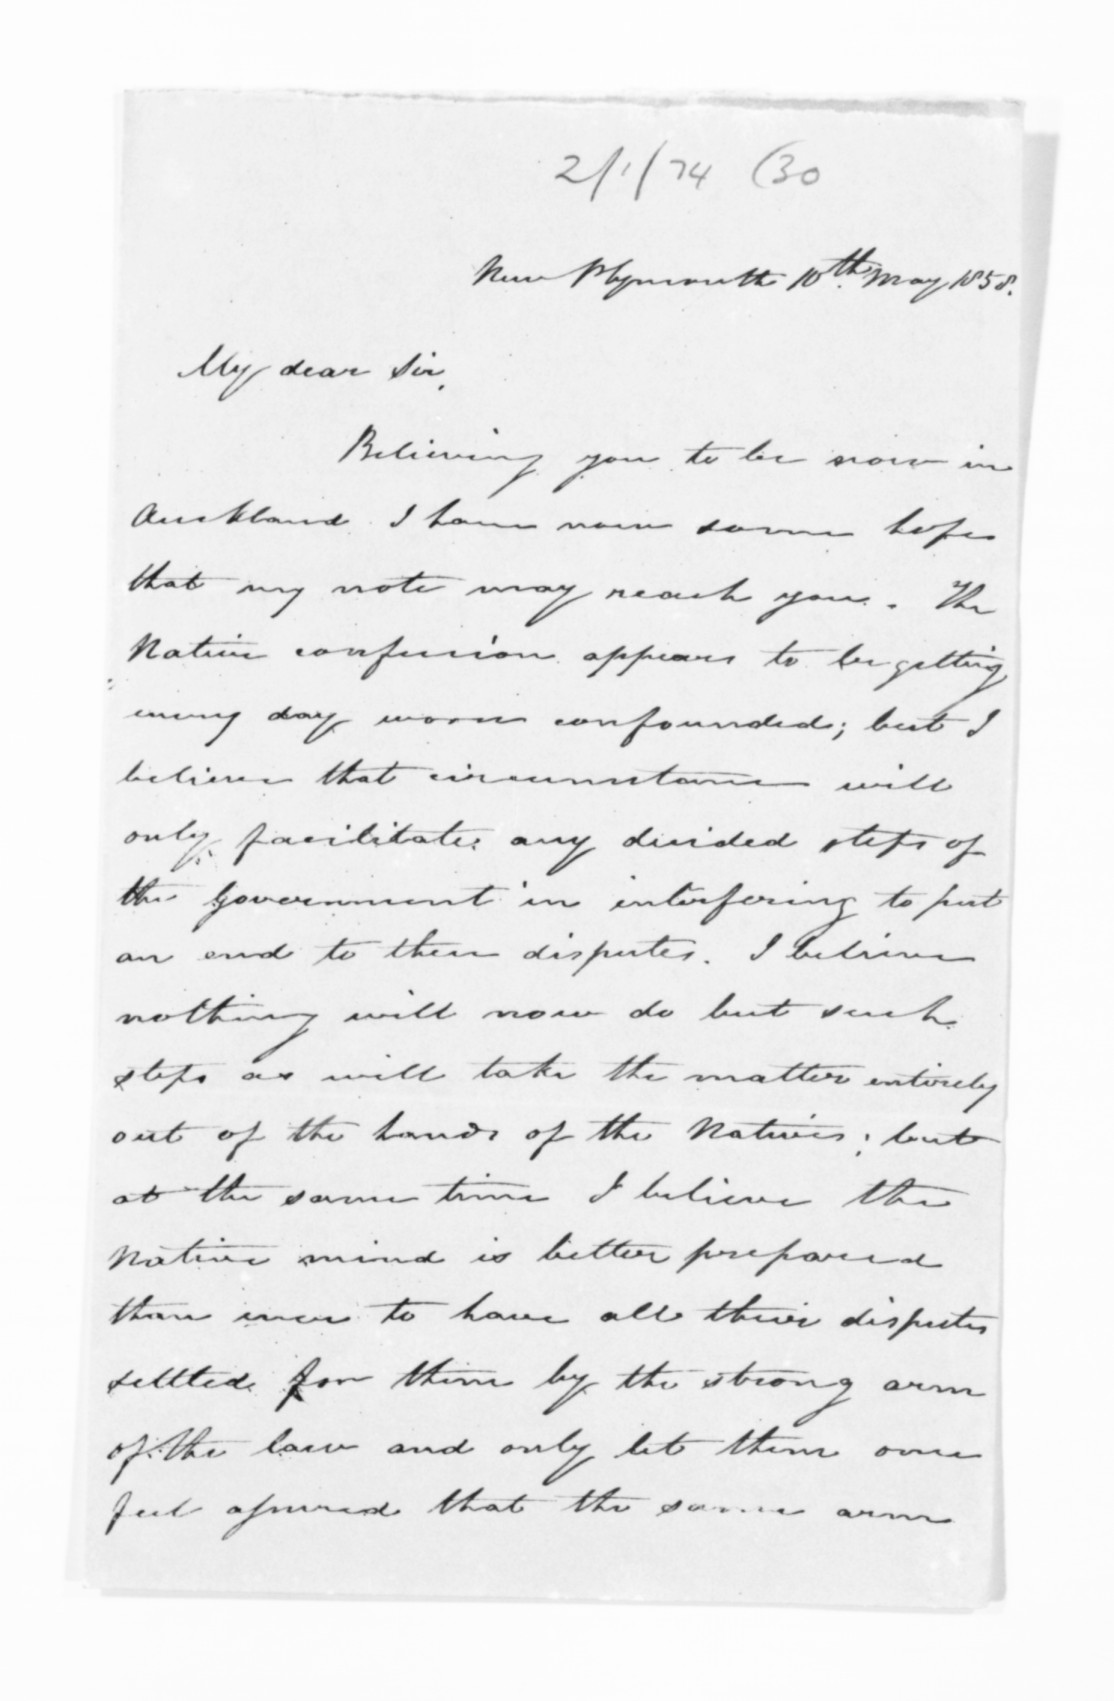 2/1/74 (30
New Plymouth 10th May 1858.
My dear Sir,
Believing you to be now in
Auckland I have now some hopes
that my note may reach you. The
Native confusion appears to be getting
every day worse confounded; but I
believe that circumstance will
only facilitate any divided steps of
the Government in interfering to put
an end to their disputes. I believe
nothing will now do but such
steps as will take the matter entirely
out of the hands of the Natives; but
at the same time I believe the
Native mind is better prepared
than ever to have all their disputes
settled for them by the strong arm
of the law and only let them once
feel assured that the same arm